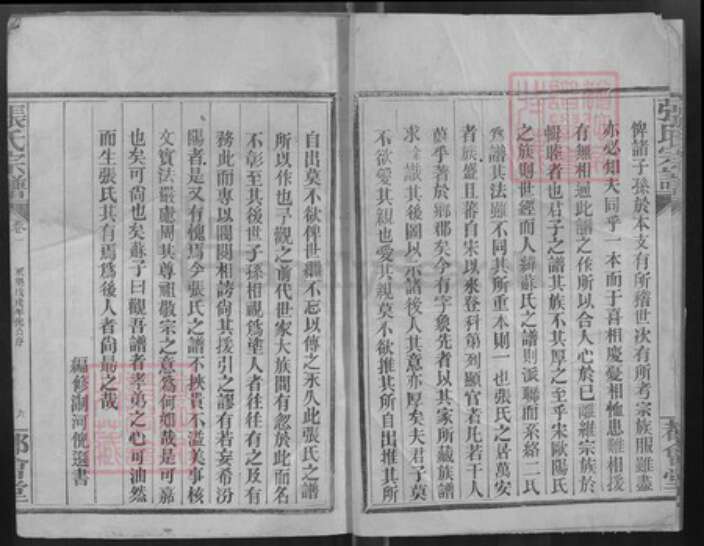 俾諸子孫於本支有所稽世次有所考宗族服雖盡
亦必知夫同乎一本而于喜相慶憂相恤患難相援
有無相通此譜之作所以合人心於已離維宗族於
輯睦者也君子之譜其族不其厚之至乎宋歐陽氏
之族則世經而人緯蘇氏之譜則派聯而系絡二氏
為譜其法雖不同其所重本則一也張氏之居萬安
者族盛且蕃自宋以來登科第列顯官者凡若干人
蔚乎著於鄉郡矣今有字象先者以其家所藏族譜
求 識其後圖以示諸後人其意亦厚矣夫君子莫
不欲愛其親也愛其親莫不欲推其所自出推其所
張氏宗譜
都會堂
自出莫不欲俾世繼不忘以傳之永久此張氏之譜
所以作也予觀之前代世家大族間有忽於此而名
不彰至其後世子孫相視為塗人者往往有之及有
務此而專以閥閱相誇尚其援引之謬有若妄希汾
陽者是又有愧焉今張氏之譜不挾貴不溢美事核
文實法嚴慮周其尊祖敬宗之意為何如哉是可嘉
也矣可尚也矣蘇子曰觀吾譜者孝弟之心可油然
而生張氏其有焉為後人者尚勗之哉
編修湖河倪選書
張氏宗譜
卷一
六
都會堂